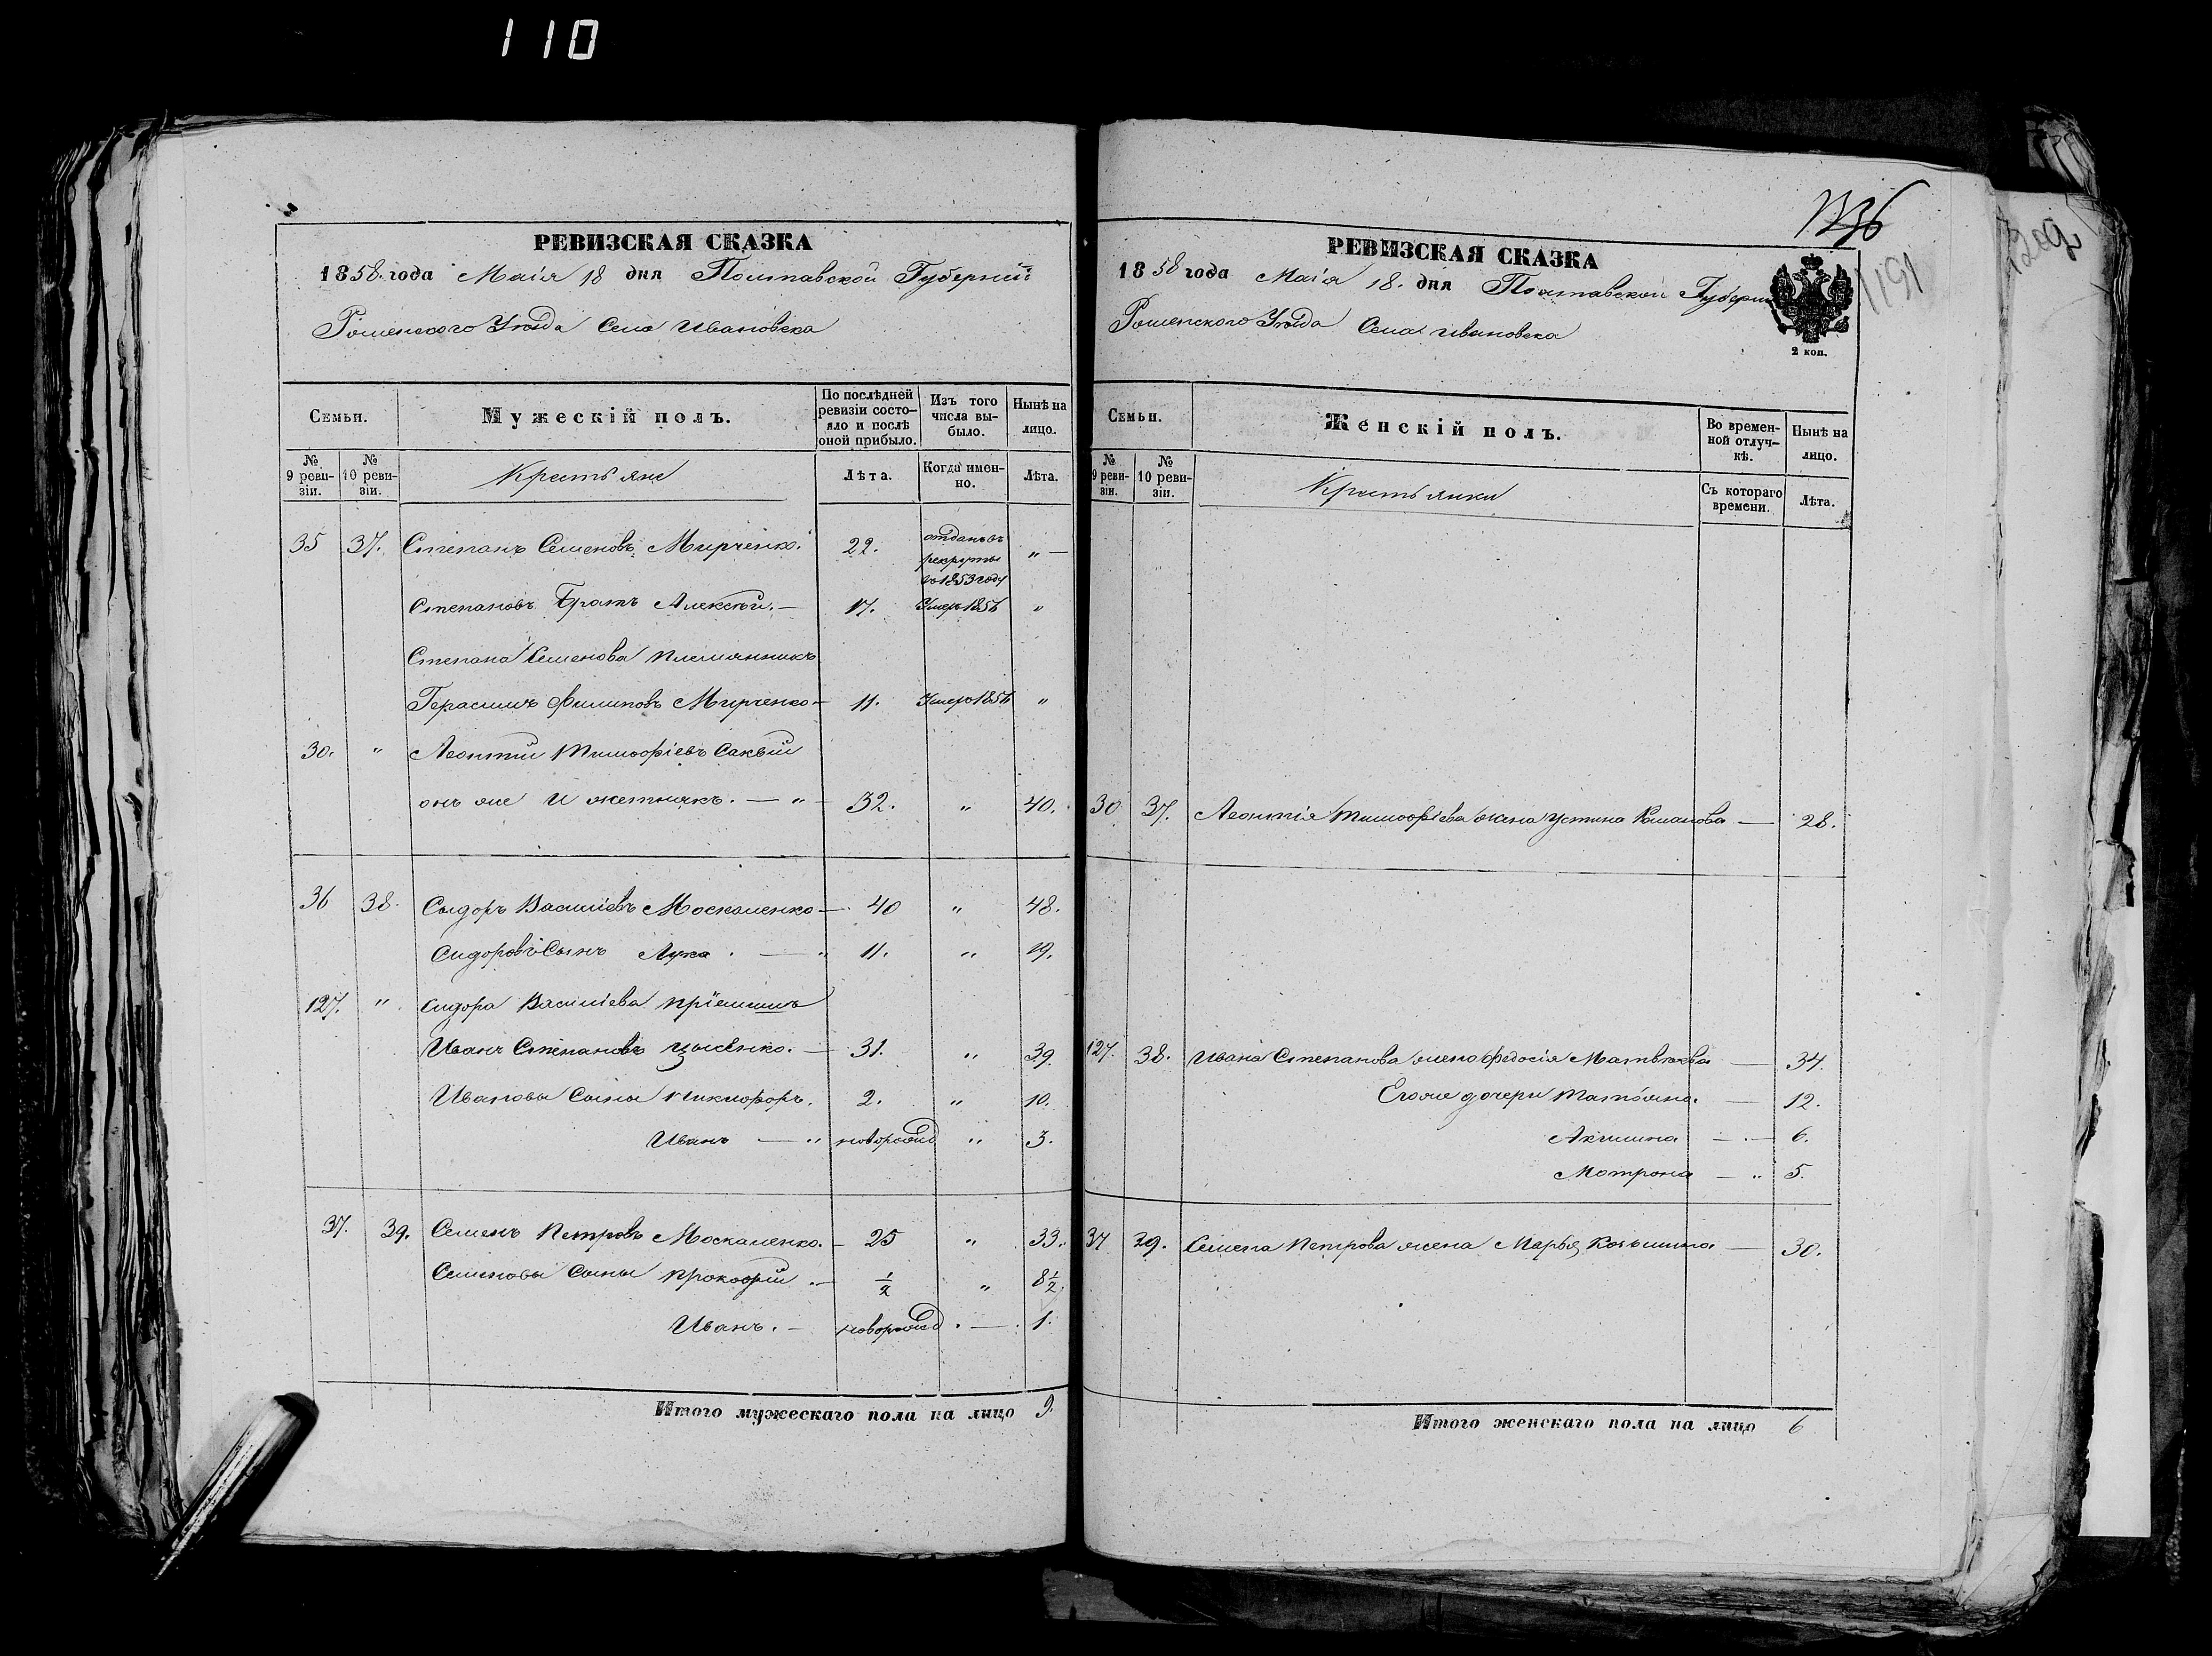 110
РЕВИЗСКАЯ СКАЗКА
1858. года Маія 18 дня Полтавской Губерніи
Роменского Уѣзда Села Ивановска
Семьи.
Мужескій полъ.
По послѣдней ревизіи состояло и послѣ оной прибыло.
Изъ того числа выбыло.
Нынѣ на лицо.
№ 9 ревизіи.
№ 10 ревизіи.
Крестьяне
Лѣта.
Когда именно.
Лѣта.
35 37. Степанъ Семеновъ Мирченко. 22. отданъ въ рекруты въ 1853 году "
Степановъ Братъ Алексѣй. — 17. Умеръ 1856 "
Степана Семенова племянникъ
Герасимъ Филиповъ Мирченко — 11. Умеръ 1856 "
30. " Леонтій Тимофіевъ
онъ же И — " — 32. " 40.
36 38. Сыдоръ Василіевъ Москаленко — 40 " 48.
Сидоровъ Сынъ Лука. — " 11. " 19.
127. " Сидора Василіева пріемышъ
Иванъ Степановъ — 31. " 39.
Ивановы Сыны Никифоръ. 2. " 10.
Иванъ — " новорожд " 3.
37. 39. Семенъ Петровъ Москаленко. — 25 " 33.
Семеновы Сыны Прокофій. — ½ " 8½
Иванъ. — новорожд. — 1.
Итого мужескаго пола на лицо 9.
1191
РЕВИЗСКАЯ СКАЗКА
1858 года Маія 18. дня Полтавской Губерніи
Роменского Уѣзда Села Ивановска
2 коп.
Семьи.
Женскій полъ.
Во временной отлучкѣ.
Нынѣ на лицо.
№ 9 ревизіи.
№ 10 ревизіи.
Крестьянки
Съ котораго времени.
Лѣта.
30 37. Леонтія Тимофіева жена Устина Романова — 28.
127. 38. Ивана Степанова жена Федосія Матвѣева — 34.
Его же дочери Татьяна. — 12.
Акилина — 6.
Мотрона — " 5.
37 39. Семена Петрова жена Марья Козьмина — 30.
Итого женскаго пола на лицо 6